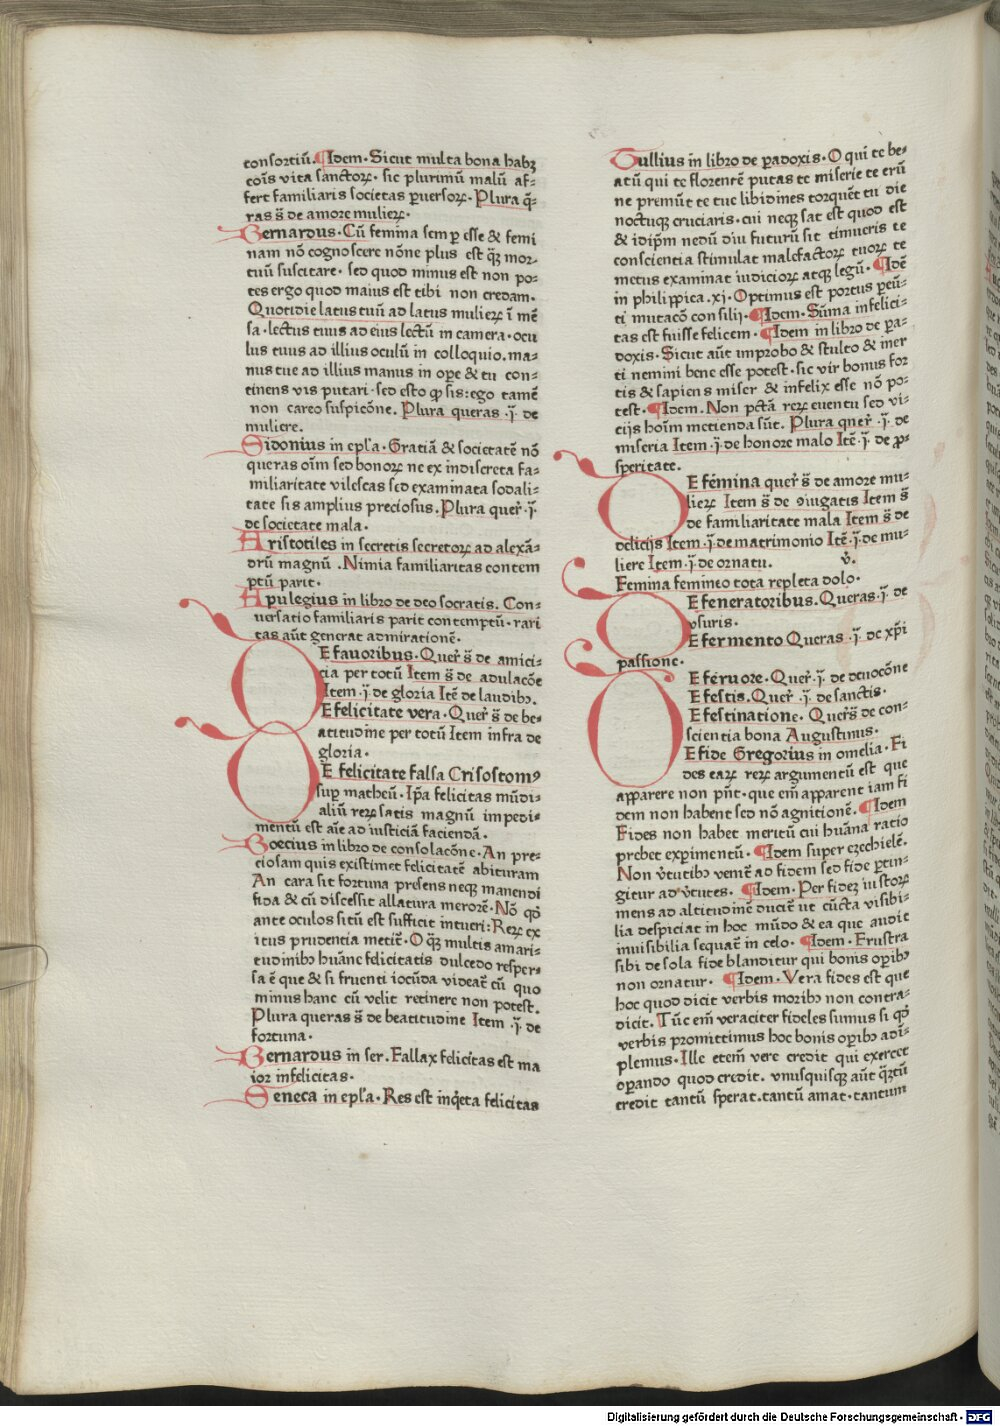 consortiū. ¶Idem. Sicut multa bona habꝫ
cōis vita sanctoꝝ. sic plurimū malū af⸗
fert familiaris societas ꝑuersoꝝ. Plura q̄⸗
ras s̄ de amore mulieꝝ.
Bernardus. Cū femina semꝑ esse & femi
nam nō cognoscere nōne plus est qꝫ mor⸗
tuū suscitare. sed quod minus est non po⸗
tes ergo quod maius est tibi non credam.
Quotidie latus tuū ad latus mulieꝝ ī mē
sa. lectus tuus ad eius lectū in camera. ocu
lus tuus ad illius oculū in colloquio. ma⸗
nus tue ad illius manus in oꝑe & tu con⸗
tinens vis putari. sed esto ꝙ sis: ego tamē
non careo suspicōne. Plura queras .ī. de
muliere.
Sidonius in epl'a. Gratiā & societatē nō
queras oīm sed bonoꝝ ne ex indiscreta fa⸗
miliaritate vilescas sed examinata sodali⸗
tate sis amplius preciosus. Plura quer' .ī.
de societate mala.
Aristotiles in secretis secretoꝝ ad alexā⸗
drū magnū. Nimia familiaritas contem
ptū parit.
Apulegius in libro de deo socratis. Con⸗
uersatio familiaris parit contemptū. rari
tas aūt generat admirationē.
DE fauoribus. Quer' s̄ de amici⸗
cia per totū Item s̄ de adulacōe
Item .ī. de gloria Itē de laudibꝯ.
E felicitate vera. Quer' s̄ de be⸗
atitudine per totū Item infra de
gloria.
DE felicitate falsa Crisostomꝯ
suꝑ matheū. Ip̄a felicitas mūdi⸗
aliū reꝝ satis magnū impedi⸗
mentū est aīe ad iusticiā faciendā.
Boecius in libro de consolacōne. An pre⸗
ciosam quis existimet felicitatē abituram
An cara sit fortuna presens neqꝫ manendi
fida & cū discessit allatura merorē. Nō qd̄
ante oculos sitū est sufficit intueri: Reꝝ ex
itus prudentia metiē. O qꝫ multis amari⸗
tudinibꝯ huāne felicitatis dulcedo resper⸗
sa ē que & si fruenti iocūda videat̄ cū quo
minus hanc cū velit retinere non potest.
Plura queras s̄ de beatitudine Item .ī. de
fortuna.
Bernardus in ser. Fallax felicitas est ma
ior infelicitas.
Seneca in epl'a. Res est inq̄eta felicitas
Tullius in libro de ꝑadoxis. O qui te be⸗
atū qui te florentē putas te miserie te erū
ne premūt te tue libidines torquēt tu die
noctuqꝫ cruciaris. cui neqꝫ sat est quod est
& idip̄m nedū diu futurū sit timueris te
conscientia stimulat malefactoꝝ tuoꝝ te
metus examinat iudicioꝝ atqꝫ legū. ¶Idē
in philippica .xj. Optimus est portus peū⸗
ti mutacō consilij. ¶Idem. Sūma infelici⸗
tas est fuisse felicem. ¶Idem in libro de ꝑa⸗
doxis. Sicut aūt improbo & stulto & iner
ti nemini bene esse potest. sic vir bonus for
tis & sapiens miser & infelix esse nō po⸗
test. ¶Idem. Non pctā reꝝ euentu sed vi⸗
cijs hoīm metienda sūt. Plura quer' .ī. de
miseria Item .ī. de honore malo Itē .ī. de ꝓ⸗
speritate.
DE femina quer' s̄ de amore mu⸗
lieꝝ Item s̄ de ꝯiugatis Item s̄
de familiaritate mala Item s̄ de
delicijs Item .ī. de matrimonio Itē .ī. de mu⸗
liere Item .ī. de ornatu. v̓.
Femina femineo tota repleta dolo.
DE feneratoribus. Queras .ī. de
vsuris.
E fermento Queras .ī. de xp̄i
passione.
DE feruore. Quer' .ī. de deuocōne
E festis. Quer' .ī. de sanctis.
E festinatione. Quer' s̄ de con⸗
scientia bona Augustinus.
E fide Gregorius in omelia. Fi
des eaꝝ reꝝ argumentū est que
apparere non pn̄t. que em̄ apparent iam fi
dem non habent sed nō agnitionē. ¶Idem
Fides non habet meritū cui huāna ratio
prebet exꝑimentū. ¶Idem super ezechielē.
Non v̓tutibꝯ venit̄ ad fidem sed fide ꝑtin⸗
gitur ad v̓tutes. ¶Idem. Per fidez iustoꝝ
mens ad altitudinē ducit̄ ut cūcta visibi⸗
lia despiciat in hoc mūdo & ea que audit
inuisibilia sequat̄ in celo. ¶Idem. Frustra
sibi de sola fide blanditur qui bonis oꝑibꝯ
non ornatur. ¶Idem. Vera fides est que
hoc quod dicit verbis moribꝯ non contra⸗
dicit. Tūc em̄ veraciter fideles sumus si qd̄
verbis promittimus hoc bonis oꝑibꝯ adī⸗
plemus. Ille etem̄ vere credit qui exercet
oꝑando quod credit. vnusquisqꝫ aūt q̄ꝫtū
credit tantū sperat. tantū amat. tantum
Digitalisierung gefördert durch die Deutsche Forschungsgemeinschaft - DFG